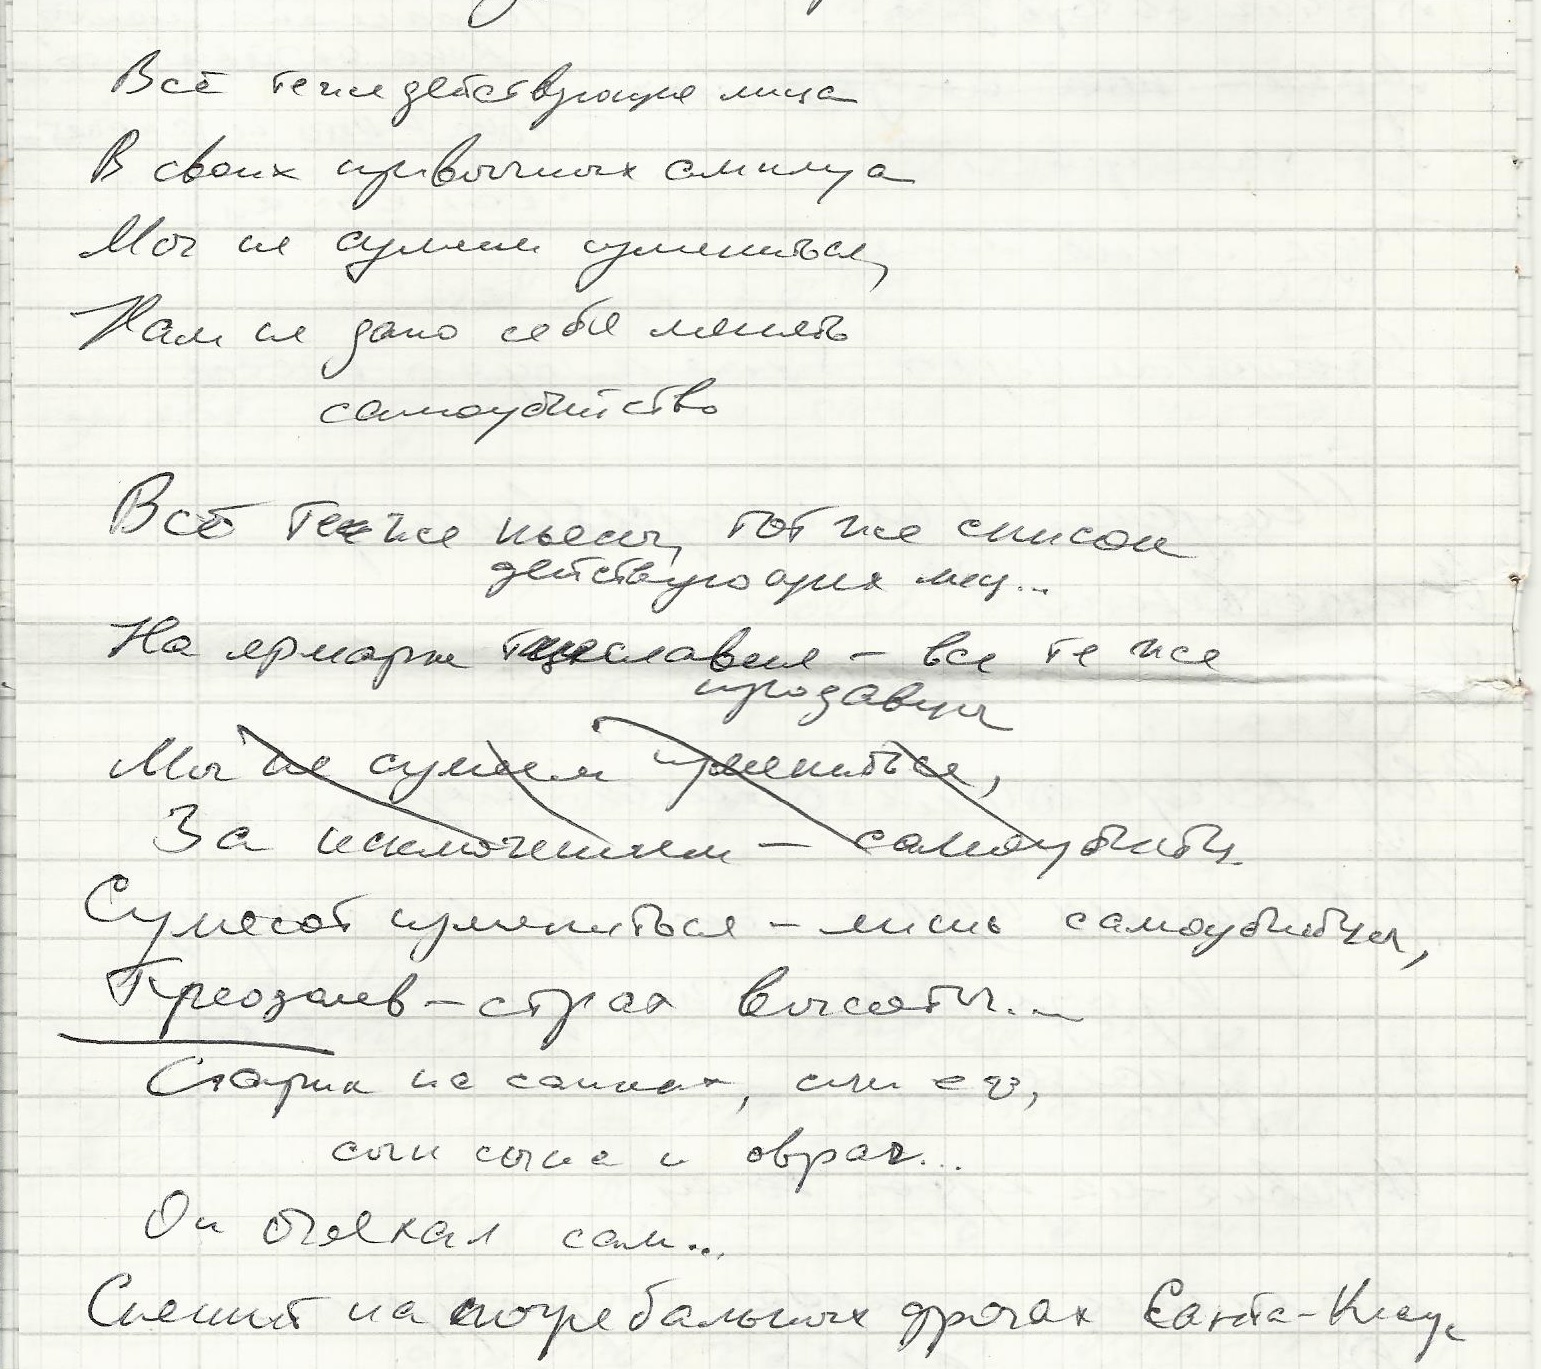 Всё те же действующие лица
В своих привычных амплуа
Мы не сумеем измениться,
Нам не дано себя менять
самоубийство
Всё те же пьесы, тот же список
действующих лиц...
На ярмарке тщеславия – все те же
продавцы
Мы не сумеем измениться,
За исключением – самоубийц
Сумеют измениться – лишь самоубийцы,
– страх высоты...
Старик на санках, сын его,
сын сына и овраг...
Он отъехал сам...
Спешит на погребальных дрогах Санта-Клаус